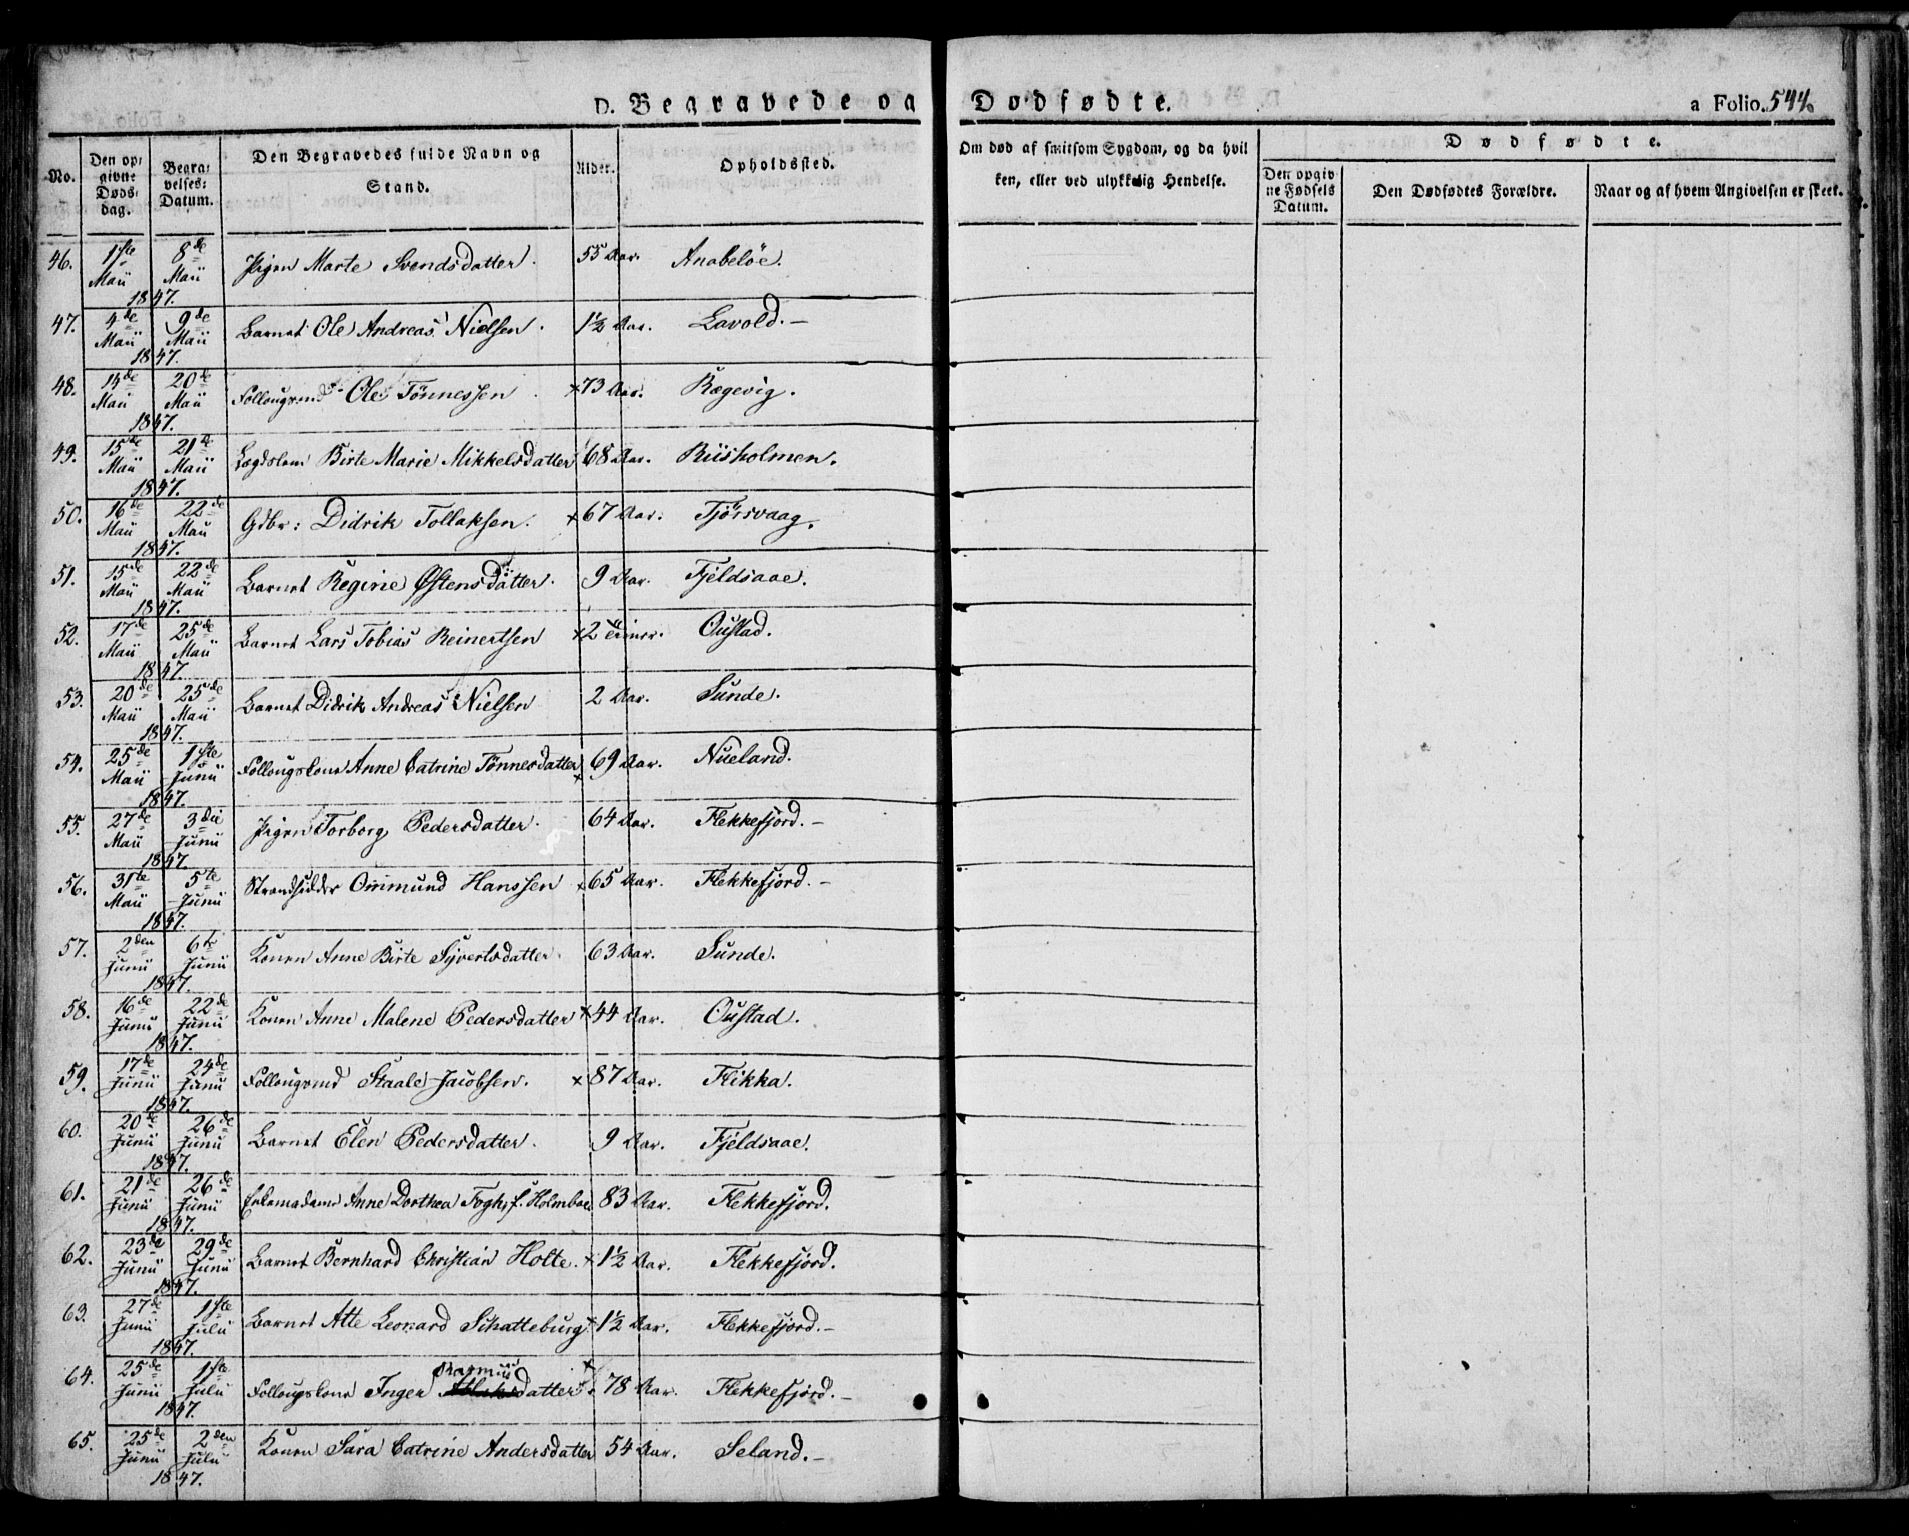 D. Begravede og Dødfødte. a Folio. 544.
No. | Den opgivne Dødsdag. | Begravelses-Datum. | Den Begravedes fulde Navn og Stand. | Alder. | Opholdssted. | Om død af smitsom Sygdom, og da hvilken, eller ved ulykkelig Hendelse. | Dødfødte. | Den opgivne Fødsels Datum. | Den Dødfødtes Forældre. | Naar og af hvem Angivelsen er skeet.
46. 1ste Maii 8de Maii 1847. Pigen Marte Svendsdatter. 55 Aar. Anabeløe.
47. 4de Maii 9de Maii 1847. Barnet Ole Andreas Nielsen. 1½ Aar. Lavold.—
48. 14de Maii 20de Maii 1847. Ole Tønnessen x 73 Aar. Rægevig.
49. 15de Maii 21de Maii 1847. Lægdslem Birte Marie Mikkelsdatter 68 Aar. Riisholmen.
50. 16de Maii 22de Maii 1847. Gdbr: Didrik Tollaksen. x 67 Aar. Tjørsvaag.
51. 15de Maii 22de Maii 1847. Barnet Regine Østensdatter. 9 Aar. Fjeldsaae.
52. 17de Maii 25de Maii 1847 Barnet Lars Tobias Reinertsen x 2 Oustad.
53. 20de Maii 25de Maii 1847. Barnet Didrik Andreas Nielsen 2 Aar. Sunde.
54. 25de Maii 1ste Junii 1847. Follougskone Anne Catrine Tønnesdatter x 69 Aar. Nueland.
55. 27de Maii 3die Junii 1847. Pigen Torborg Pedersdatter. 64 Aar. Flekkefjord.—
56. 31te Maii 5te Junii 1847. Strandsidder Ommund Hanssen x 65 Aar. Flekkefjord.—
57. 2den Junii 6te Junii 1847. Konen Anne Birte Syvertsdatter. 63 Aar. Sunde.
58. 16de Junii 22de Junii 1847. Konen Anne Malene Pedersdatter x 44 Aar. Oustad.
59. 17de Junii 24de Junii 1847. Follougsmd Staale Jacobsen. x 87 Aar. Flikka.
60. 20de Junii 26de Junii 1847. Barnet Elen Pedersdatter. 9 Aar. Fjeldsaae.
61. 21de Junii 26de Junii 1847. Enkemadame Anne Dorthea Fogh, f. Holmboe 83 Aar. Flekkefjord.
62. 23de Junii 29de Junii 1847. Barnet Bernhard Christian Holte. x 1½ Aar. Flekkefjord.
63. 27de Junii 1ste Julii 1847. Barnet Atte Leonard Schatteburg x 1½ Aar. Flekkefjord.—
64. 25de Junii 1ste Julii 1847. Follougskone Inger Rasmusdatter x 78 Aar. Flekkefjord.—
65. 25de Junii 2den Julii 1847. Konen Sara Catrine Andersdatter 54 Aar. Seland.—